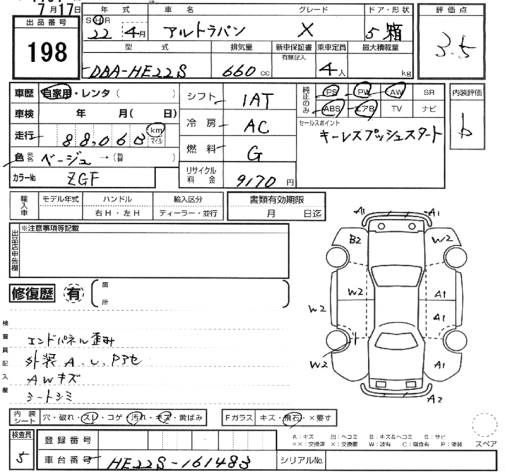 7月17日
出品番号
198
年式 車名 グレード ドア・形状
SH 22年 4月 アルトラパン X 5 箱
型式 排気量 新車保証書 乗車定員 最大積載量
有無記入
DBA-HE22S 660cc 4人 kg
評価点
3.5
車歴 自家用・レンタ( )
車検 年 月( 日)
走行 88,063 km マイル
色 色名 ベージュ → (替)
カラーNo ZGF
シフト 1AT
冷房 AC
燃料 G
リサイクル料金 9170円
純正のみ
PS PW AW SR
ABS エアB TV ナビ
内装評価
b
セールスポイント
キーレスプッシュスタート
輸入車
モデル年式 ハンドル 輸入区分
右H・左H ディーラー・並行
書類有効期限
月 日迄
出品店申告欄
※注意事項等記載
修復歴 有 箇所
検査員記入欄
エンドパネル歪み
外装A、U、Pアセ
AWキズ
シートシミ
A1 A1
B2 W2
W2 A1
W2 A1
W2 A1
A2
内装シート 穴・破れ・スレ・コゲ・汚れ・キズ・黄ばみ
Fガラス キズ・飛石・×要す
検査員
5
登録番号
車台番号 HE22S-161483 シリアルNo.
A:キズ U:ヘコミ B:キズ&ヘコミ S:サビ
××:交換済 ×:要交換 W:波有 C:腐食有 P:塗装
スペア